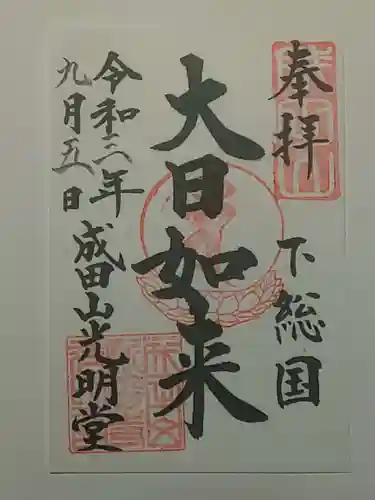 奉拝
下総国
大日如来
令和三年
九月五日
成田山光明堂